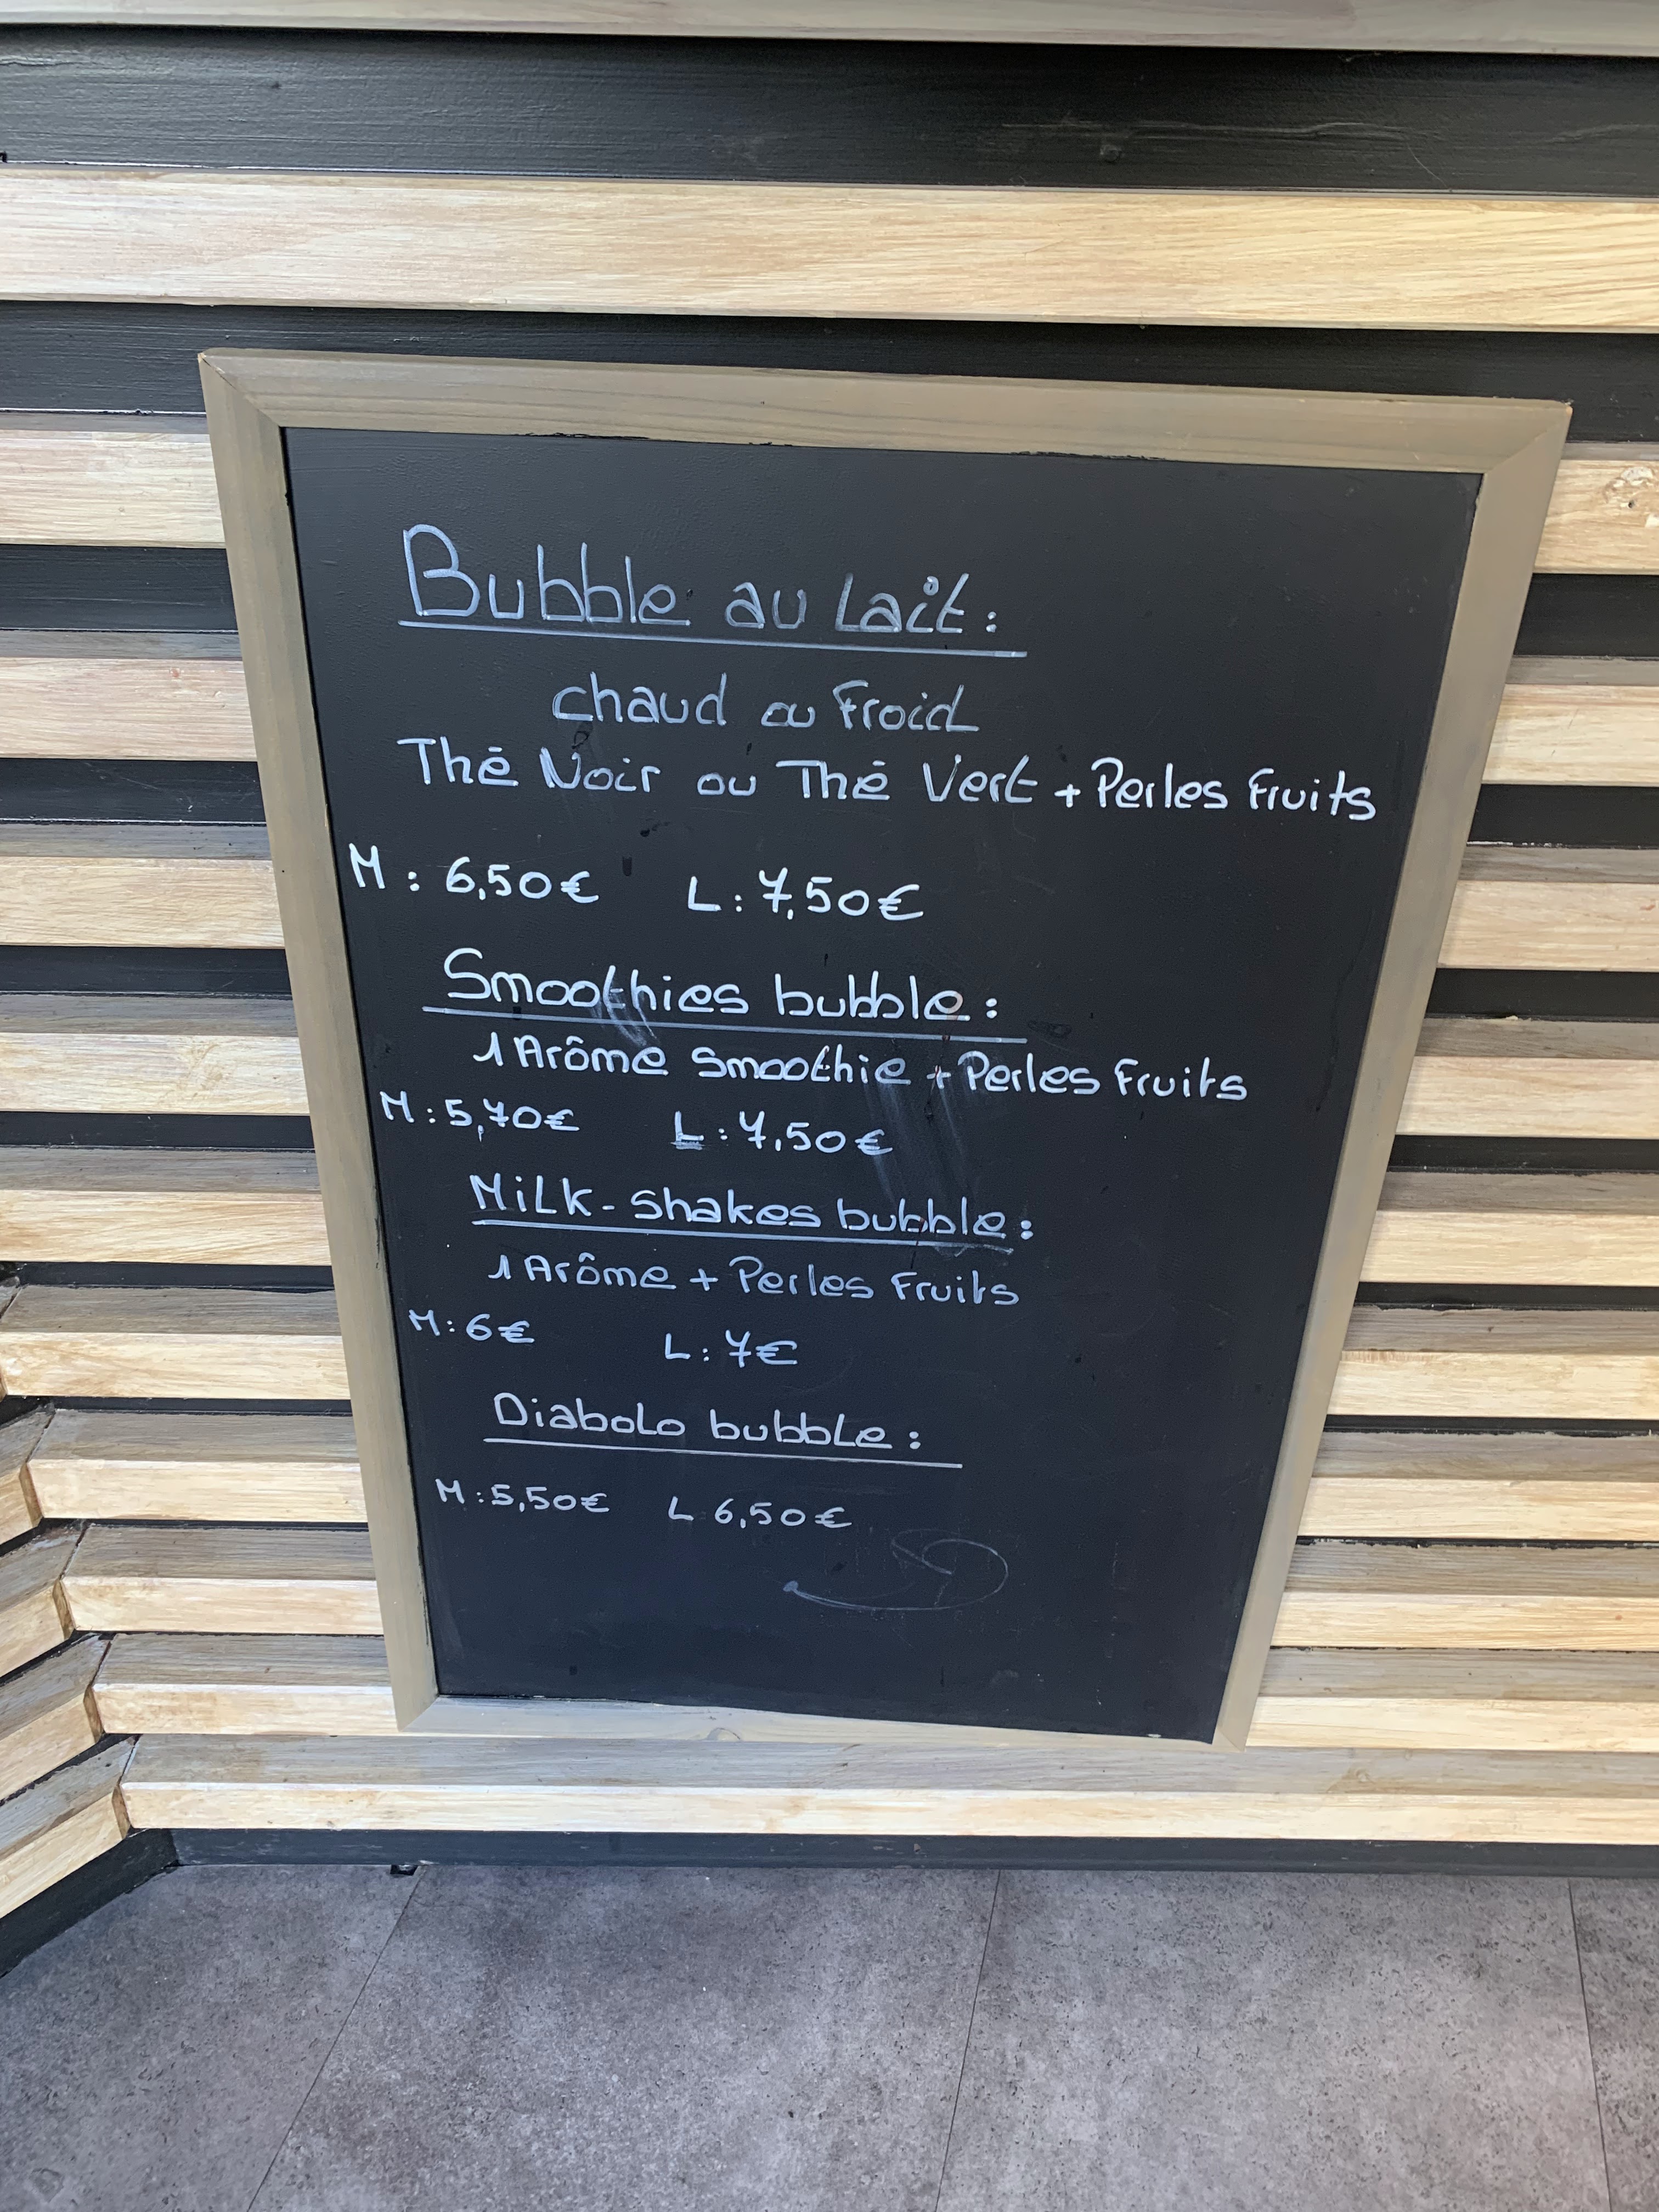 Bubble au Lait :
chaud ou Froid
Thé Noir ou Thé Vert + Perles Fruits
M : 6,50€ L : 7,50€
Smoothies bubble :
1 Arôme Smoothie + Perles Fruits
M : 5,70€ L : 7,50€
MiLk - Shakes bubble :
1 Arôme + Perles Fruits
M : 6€ L : 7€
Diabolo bubble :
M : 5,50€ L 6,50€